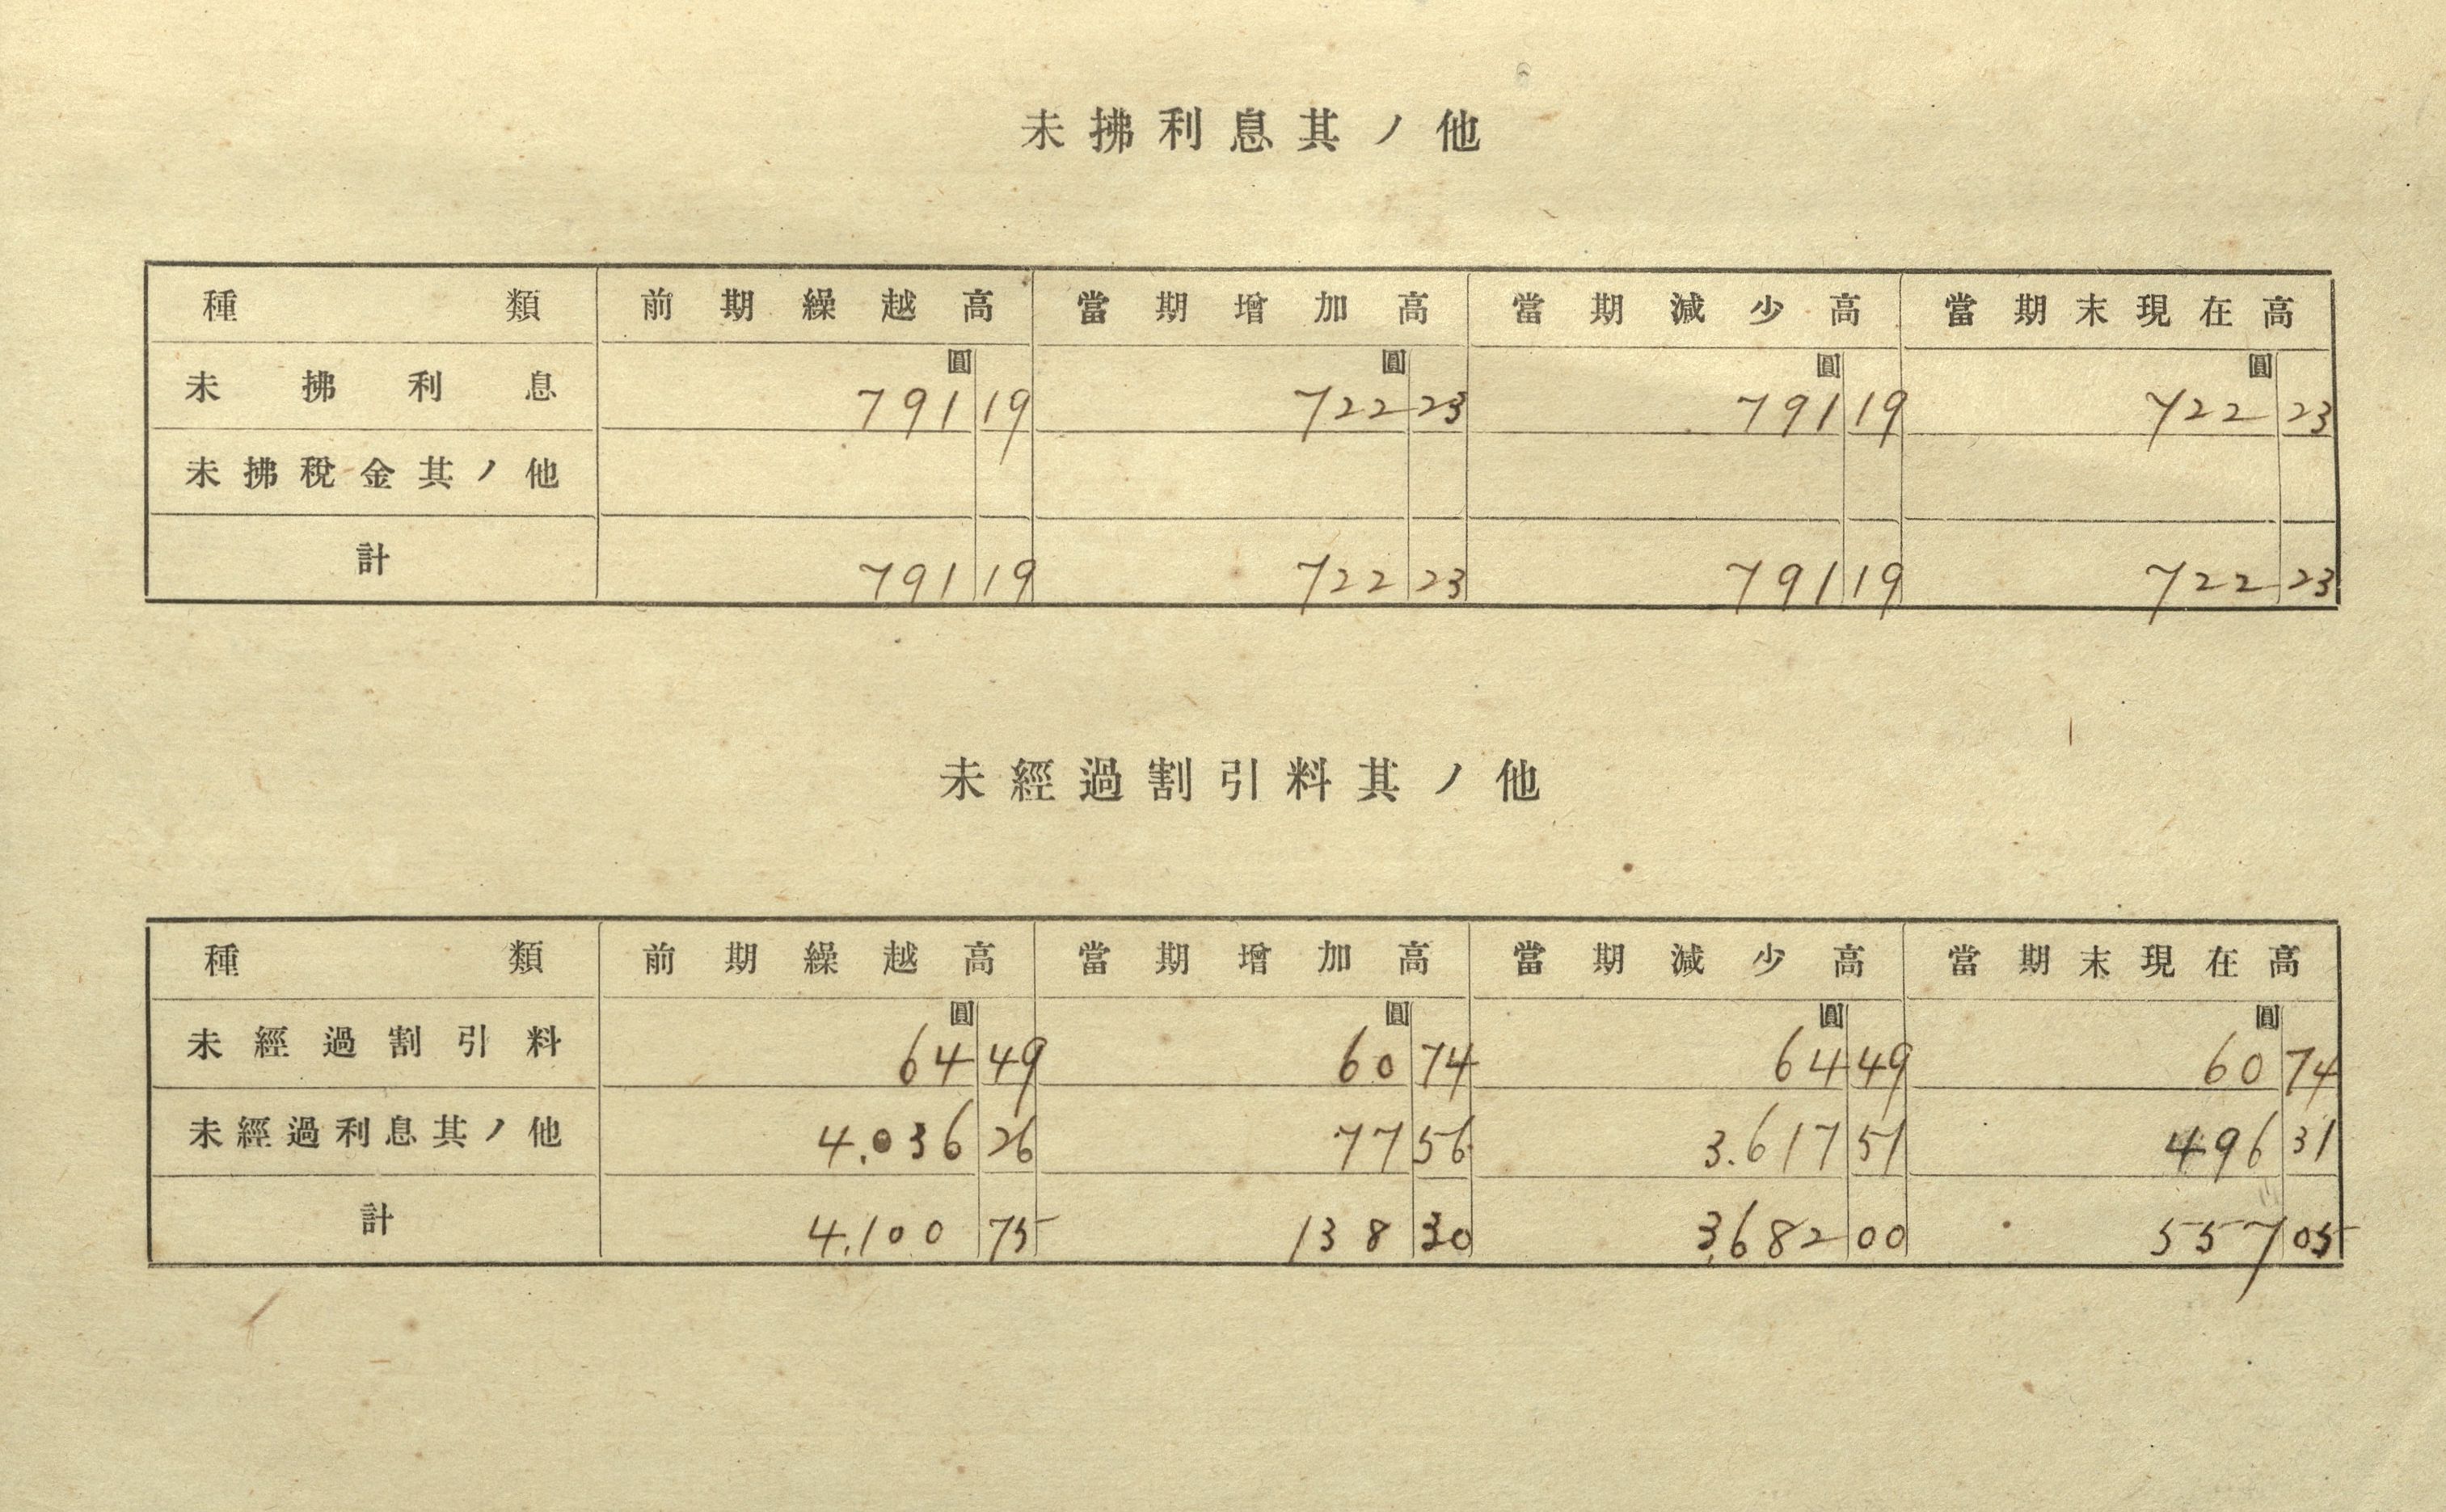 未拂利息其ノ他
種類 前期繰越高 當期增加高 當期減少高 當期末現在高
圓 圓 圓 圓
未拂利息 791 19 722 23 791 19 722 23
未拂稅金其ノ他
計 791 19 722 23 791 19 722 23
未經過割引料其ノ他
種類 前期繰越高 當期增加高 當期減少高 當期末現在高
圓 圓 圓 圓
未經過割引料 64 49 60 74 64 49 60 74
未經過利息其ノ他 4.036 26 77 56 3.617 51 496 31
計 4.100 75 138 30 3.682 00 557 05